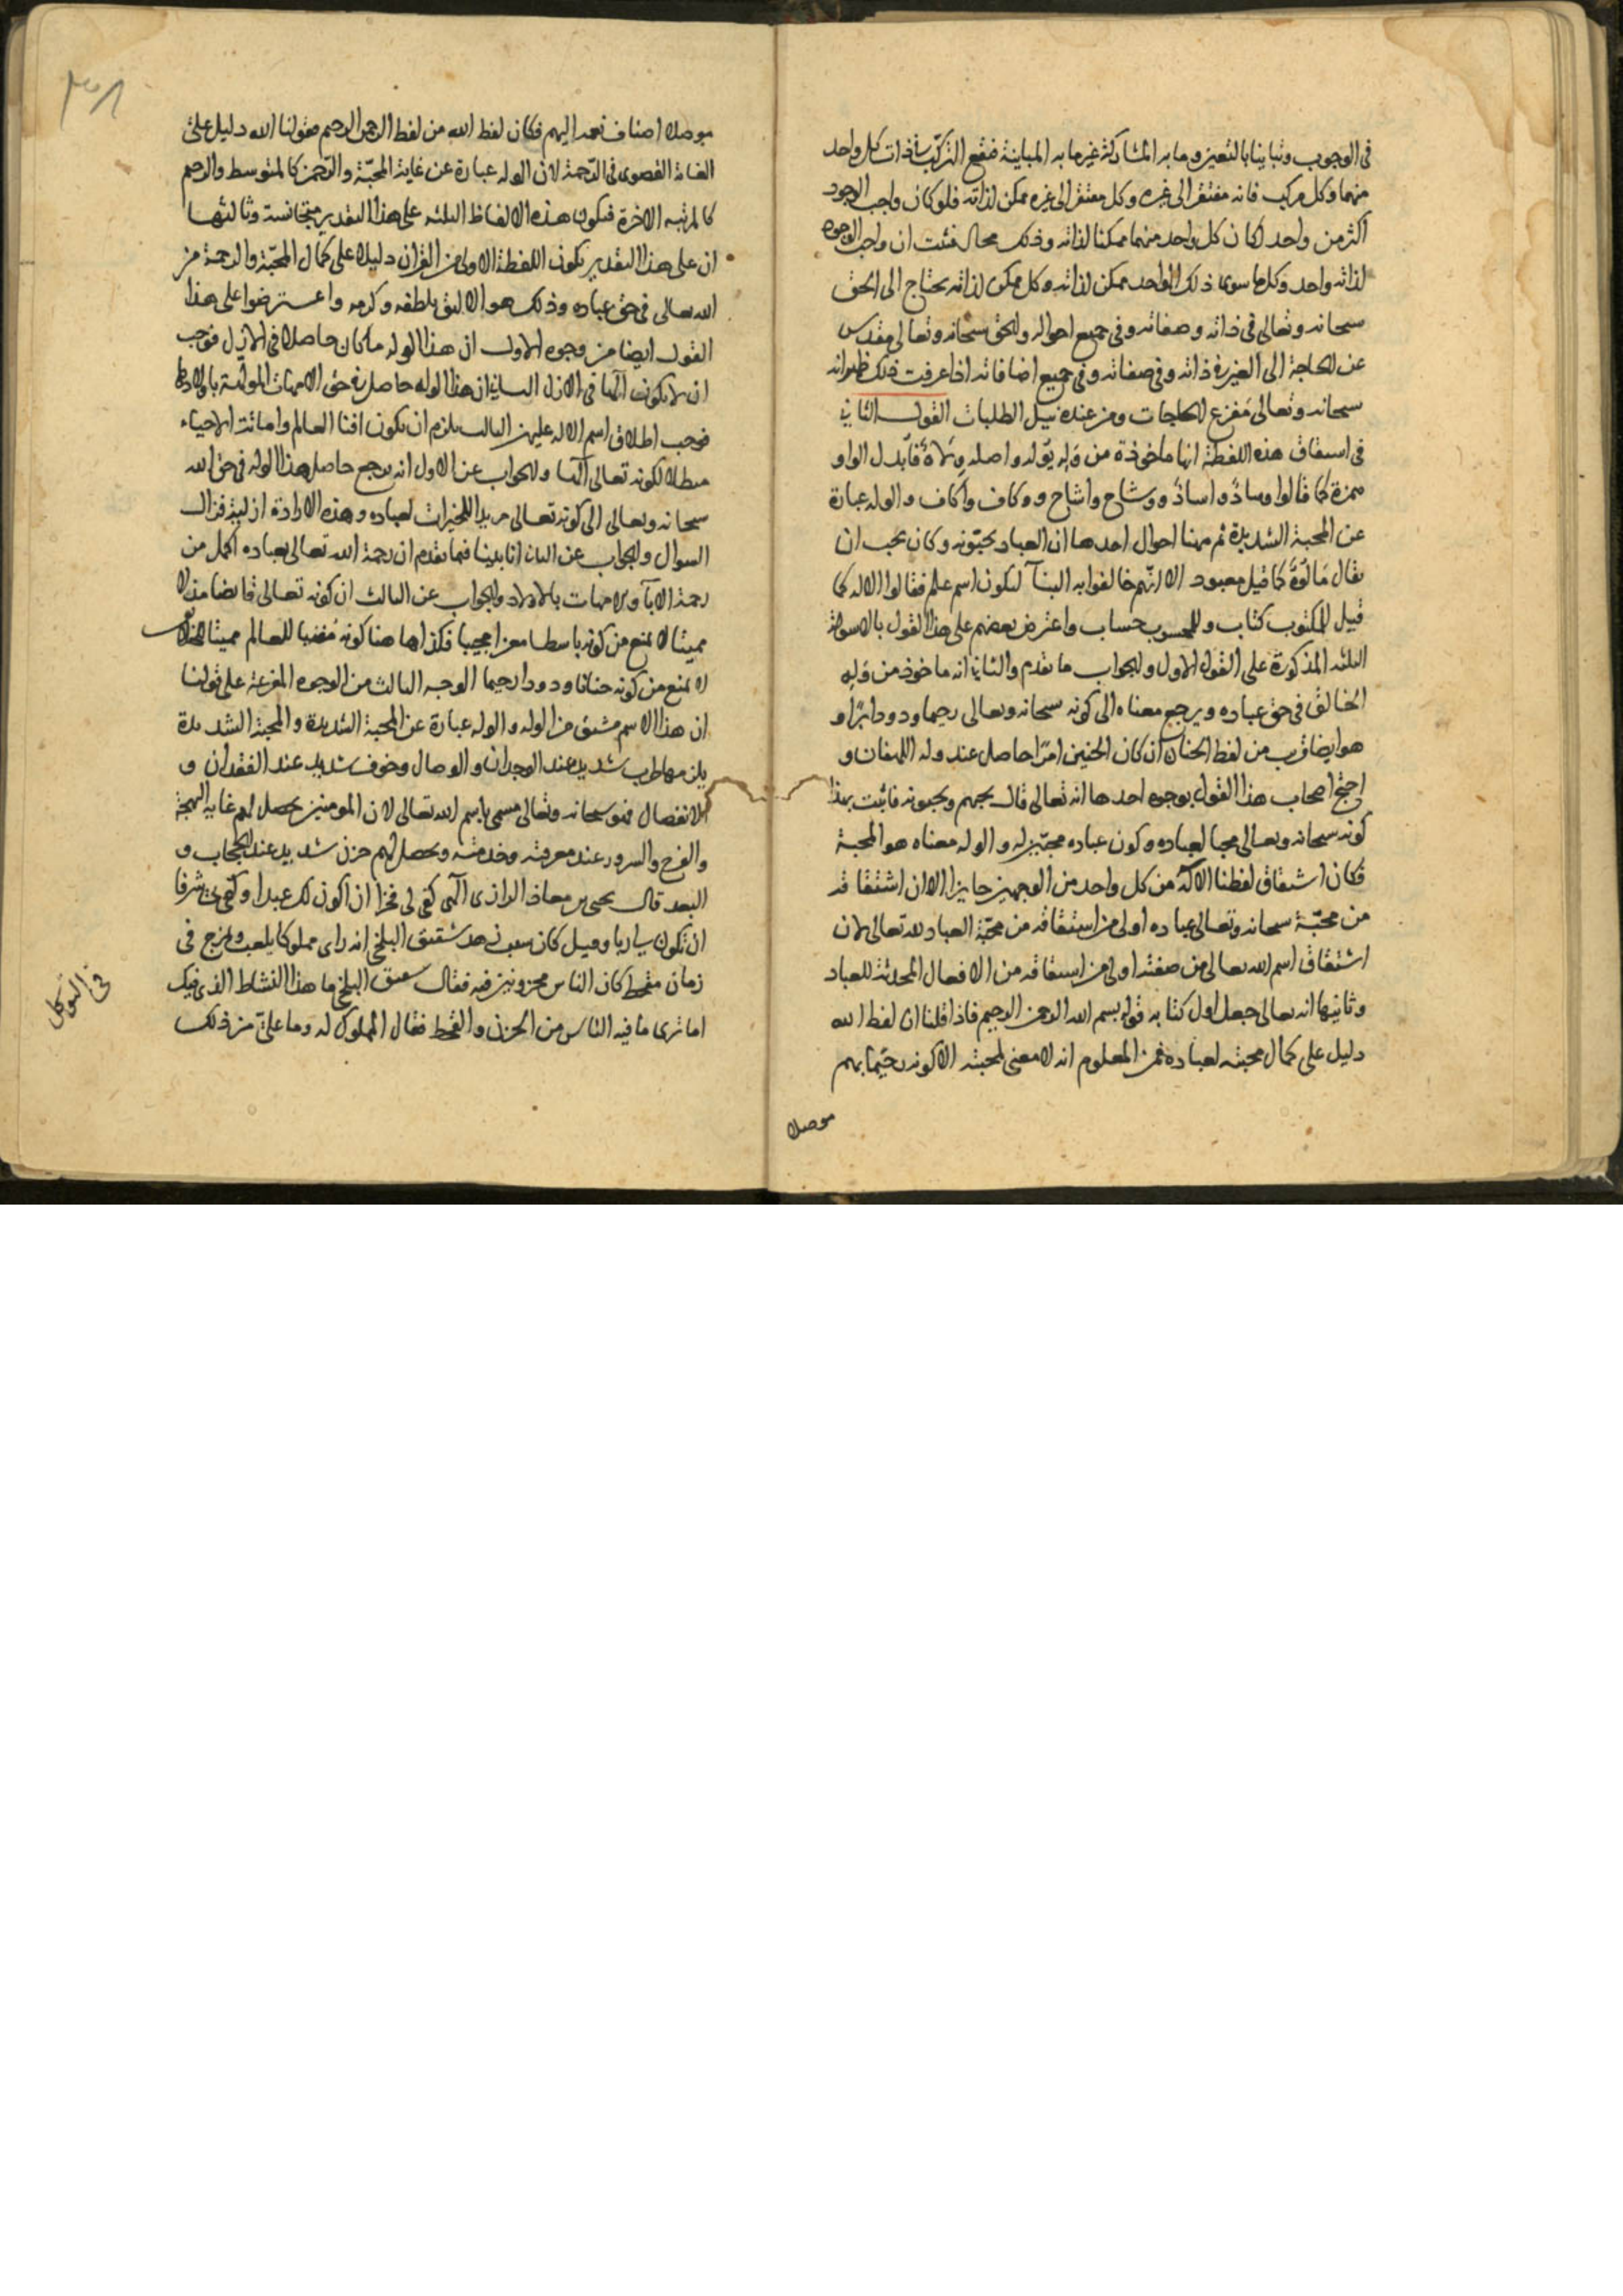 فى الوجوب وتباينا بالتعين وما به المشاركة غير ما به المباينة فيقع التركيب فى ذات كل واحد
منهما وكل مركب فانه مفتقر الى غيره وكل مفتقر الى غيره ممكن لذاته فلو كان واجب الوجود
اكثر من واحد لكان كل واحد منهما ممكنا لذاته وذلك محال فثبت ان واجب الوجود
لذاته واحد وكل ما سوى ذلك الواحد ممكن لذاته وكل ممكن لذاته يحتاج الى الحق
سبحانه وتعالى فى ذاته وصفاته وفى جميع احواله والحق سبحانه وتعالى مقدس
عن الحاجة الى الغير فى ذاته وفى صفاته وفى جميع اضافاته اذا عرفت ذلك ظهر انه
سبحانه وتعالى مفزع الحاجات ومن عنده نيل الطلبات القول الثانى
فى اشتقاق هذه اللفظة انها ماخوذة من وله يوله واصله ولاه فابدل الواو
همزة كما قالوا وساد واساد ووشاح واشاح ووكاف واكاف والوله عبارة
عن المحبة الشديدة ثم ههنا احوال احدها ان العباد يحبونه وكان يجب ان
يقال مالوه كما قيل معبود الا انهم خالفوا به البنآ ليكون اسم علم فقالوا الاله كما
قيل للمكتوب كتاب وللمحسوب حساب واعترض بعضهم على هذا القول بالاسولة
الثلثه المذكورة على القول الاول والجواب ما تقدم والثانى انه ماخوذ من وله
الخالق فى حق عباده ويرجع معناه الى كونه سبحانه وتعالى رحيما ودودا برا و
هو ايضا قريب من لفظ الحنان ان كان الحنين امرا حاصل عند وله اللهفان و
احتج اصحاب هذا القول بوجوه احدها انه تعالى قال يحبهم ويحبونه فاثبت بهذا
كونه سبحانه وتعالى محبا لعباده وكون عباده محبين له والوله معناه هو المحبة
فكان اشتقاق لفظنا الاله من كل واحد من الوجهين جايزا الا ان اشتقاقه
من محبة سبحانه وتعالى عباده اولى من اشتقاقه من محبة العباد لله تعالى لان
اشتقاق اسم الله تعالى من صفته اولى من اشتقاقه من الافعال المحدثة للعباد
وثانيها انه تعالى جعل اول كتابه قوله بسم الله الرحمن الرحيم فاذا قلنا ان لفظ الله
دليل على كمال محبته لعباده فمن المعلوم انه لا معنى لمحبته الا كونه رحيما بهم
موصلا
موصلا اصناف نعمه اليهم فكان لفظ الله من لفظ الرحمن الرحيم فقولنا الله دليل على
الغاية القصوى فى الرحمة لان الوله عبارة عن غاية المحبة والرحمن كالمتوسط والرحيم
كالمرتبه الاخرة فيكون هذه الالفاظ الثلثه على هذا التقدير متجانسة وثالثها
ان على هذا التقدير يكون اللفظة الاولى من القران دليلا على كمال المحبة والرحمة من
الله تعالى فى حق عباده وذلك هو الاليق بلطفه وكرمه واعترضوا على هذا
القول ايضا من وجوه الاول ان هذا الوله ما كان حاصلا فى الازل فوجب
ان لا يكون الها فى الازل الثانى ان هذا الوله حاصل فى حق الامهات المولهة باولادها
فوجب اطلاق اسم الاله عليهن الثالث يلزم ان يكون افنا العالم واماتة الاحياء
مبطلا لكونه تعالى الها والجواب عن الاول انه يرجع حاصل هذا الوله فى حق الله
سبحانه وتعالى الى كونه تعالى مريدا للخيرات لعباده وهذه الارادة ازلية فزال
السوال والجواب عن الثانى انا بينا فيما تقدم ان رحمة الله تعالى بعباده اكمل من
رحمة الابآ والامهات بالاولاد والجواب عن الثالث ان كونه تعالى قابضا مذلا
مميتا لا يمنع من كونه باسطا معزا محييا فكذا ها هنا كونه مفنيا للعالم مميتا لاهله
لا يمنع من كونه حنانا ودودا رحيما الوجه الثالث من الوجوه المفرعة على قولنا
ان هذا الاسم مشتق من الوله والوله عبارة عن المحبة الشديدة والمحبة الشديدة
يلزمها طرب شديد عند الوجدان والوصال وخوف شديد عند الفقدان و
الانفصال فهو سبحانه وتعالى مسمى باسم الله تعالى لان المومنين يحصل لهم غاية البهجة
والفرح والسرور عند معرفته وخدمته ويحصل لهم حزن شديد عند الحجاب و
البعد قال يحيى بن معاذ الرازى الهى كفى لى فخرا ان اكون لك عبدا وكفى بى شرفا
ان تكون لى ربا وقيل كان سبب زهد شقيق البلخى انه راى مملوكا يلعب ويمزح فى
زمان قحط كان الناس محزونين فيه فقال شقيق البلخى ما هذا النشاط الذى فيك
اما ترى ما فيه الناس من الحزن والقحط فقال المملوك له وما على من ذلك
فى التوكل